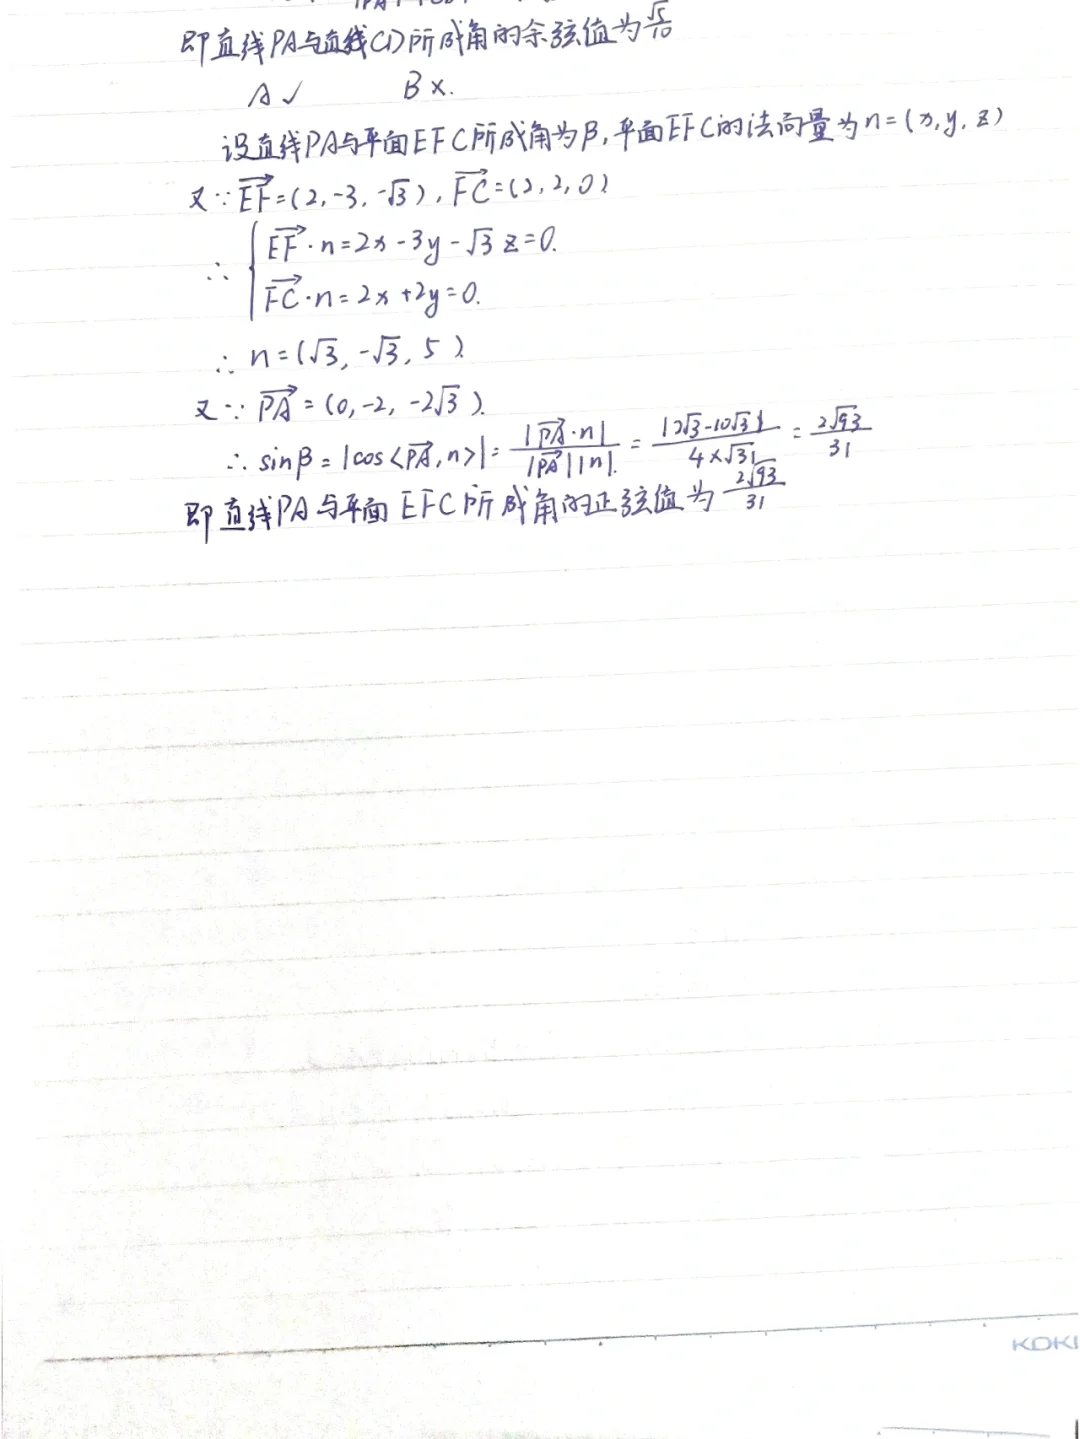 即直线PA与直线CD所成角的余弦值为√5/10
A✓ B×.
设直线PA与平面EFC所成角为β,平面EFC的法向量为n=(x,y,z)
又∵EF=(2,-3,-√3),FC=(2,2,0)
∴{EF·n=2x-3y-√3z=0.
FC·n=2x+2y=0.
∴n=(√3,-√3,5).
又∵PA=(0,-2,-2√3).
∴sinβ=|cos<PA,n>|=|PA·n|/|PA||n|.=|2√3-10√3|/4×√31=2√93/31
即直线PA与平面EFC所成角的正弦值为2√93/31